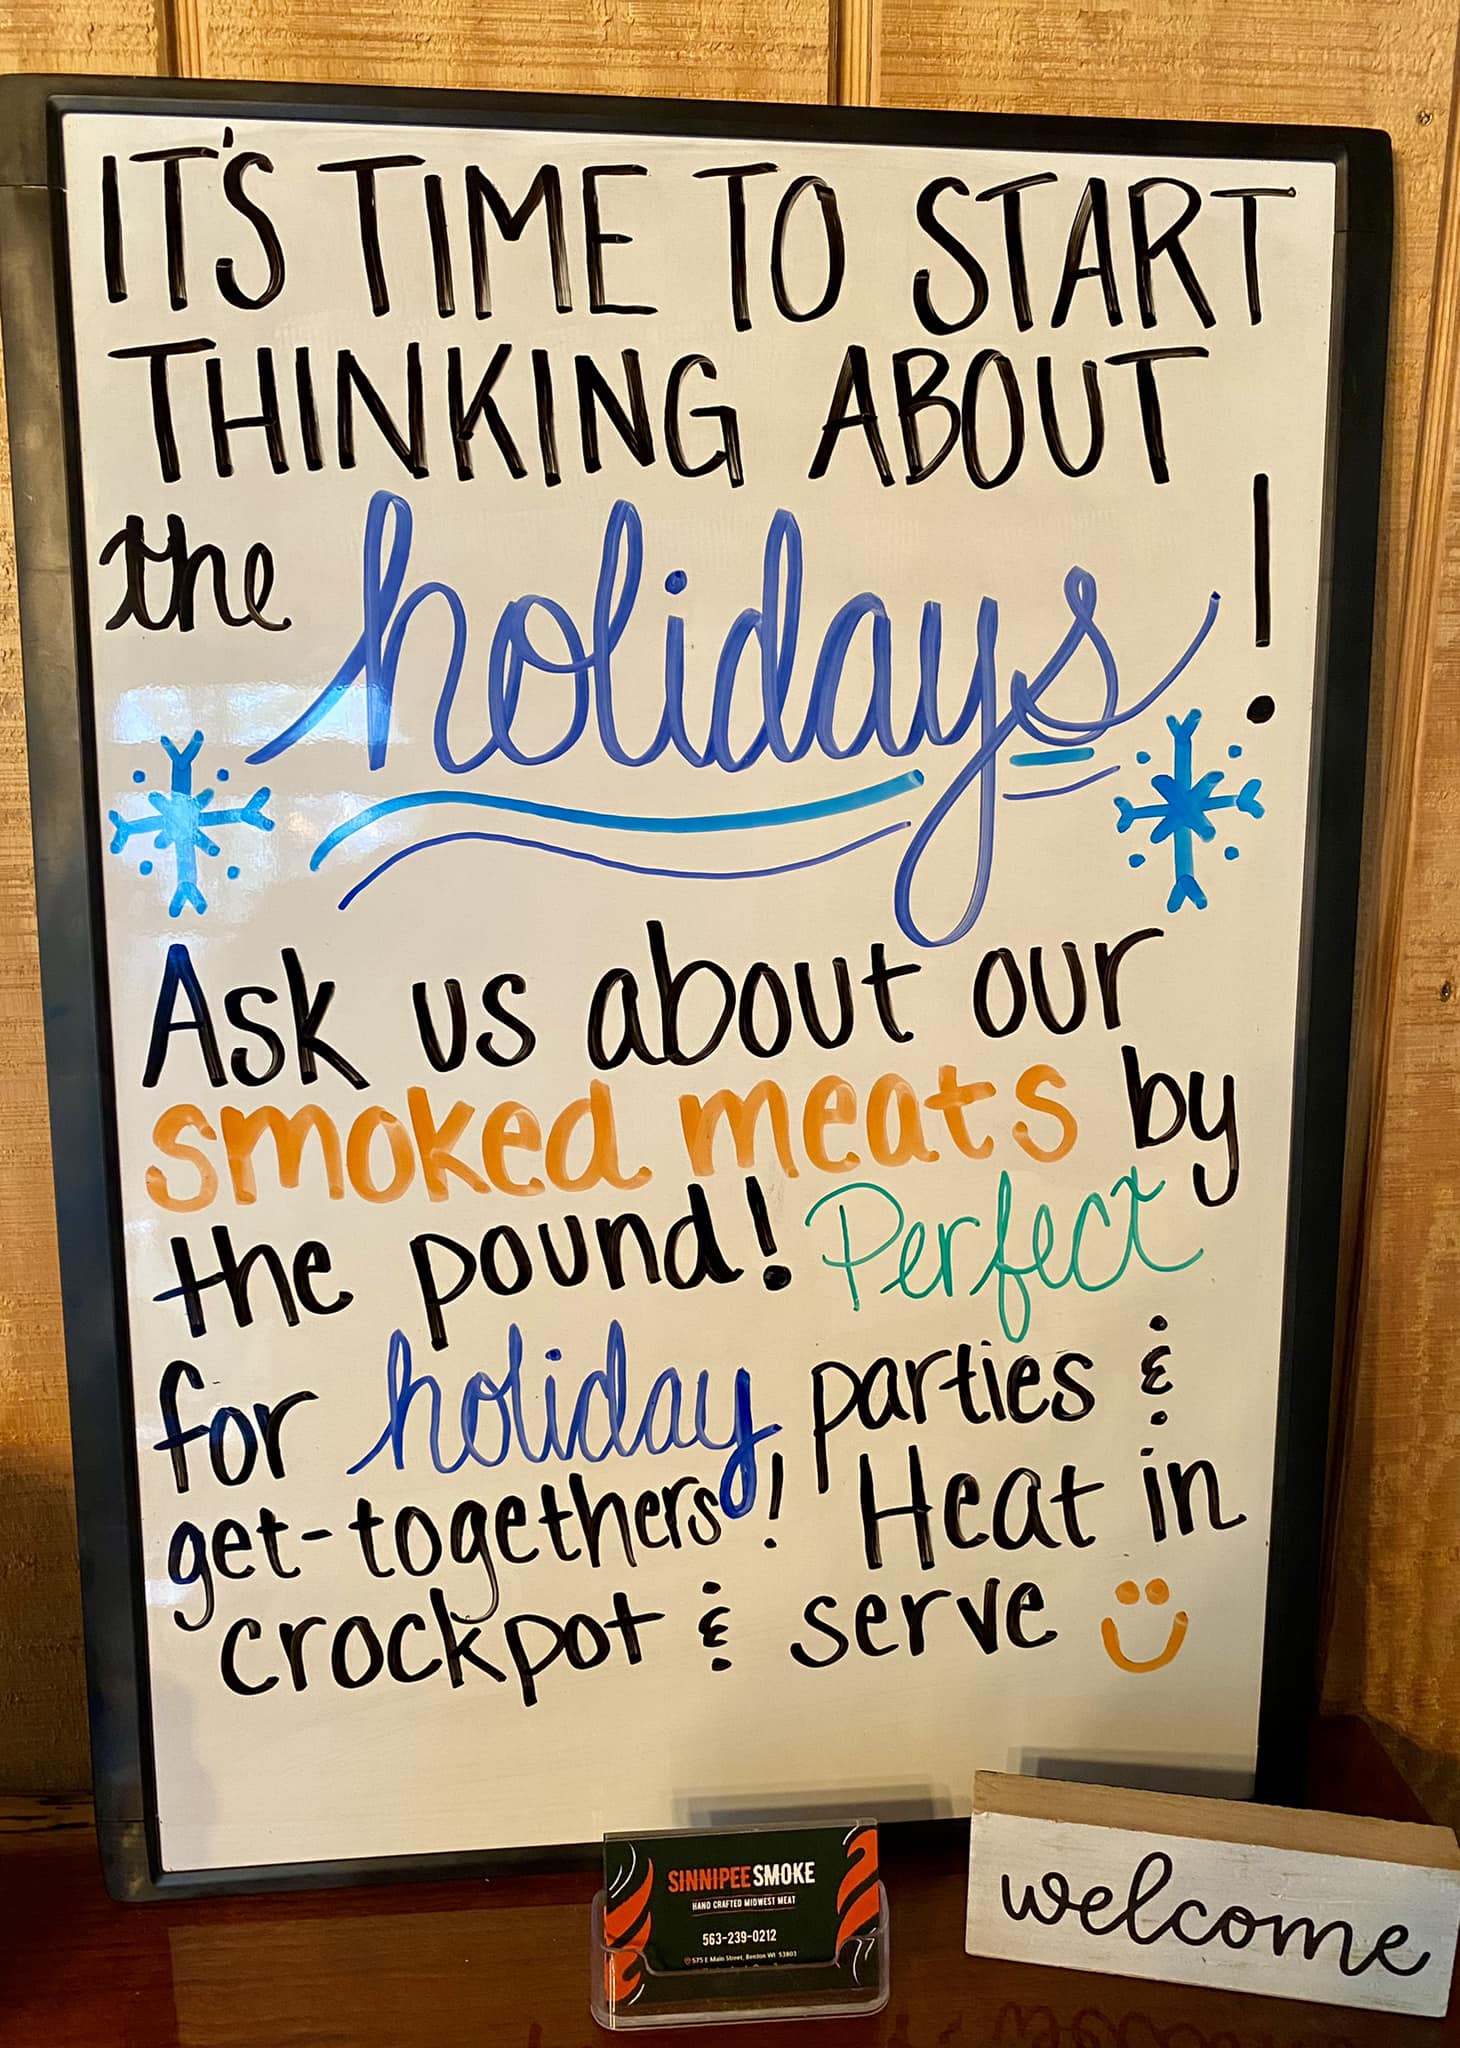 IT'S TIME TO START
THINKING ABOUT
the holidays!
Ask us about our
smoked meats by
the pound! Perfect
for holiday parties &
get-togethers! Heat in
crockpot & serve
SINNIPEE SMOKE
HAND CRAFTED MIDWEST MEAT
563-239-0212
575 E Main Street, Benton WI 53803
welcome